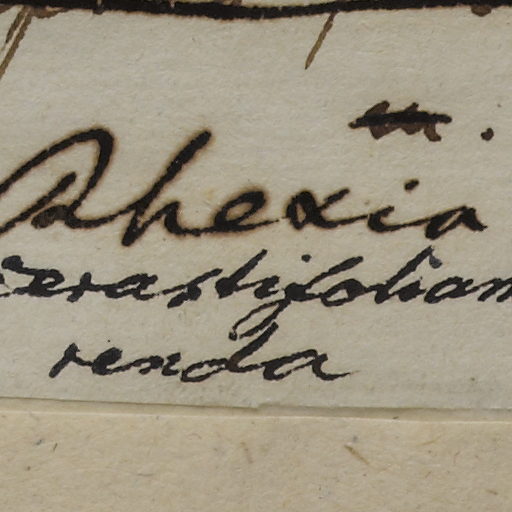 m.
Rhexia
cerastifolia m
renda